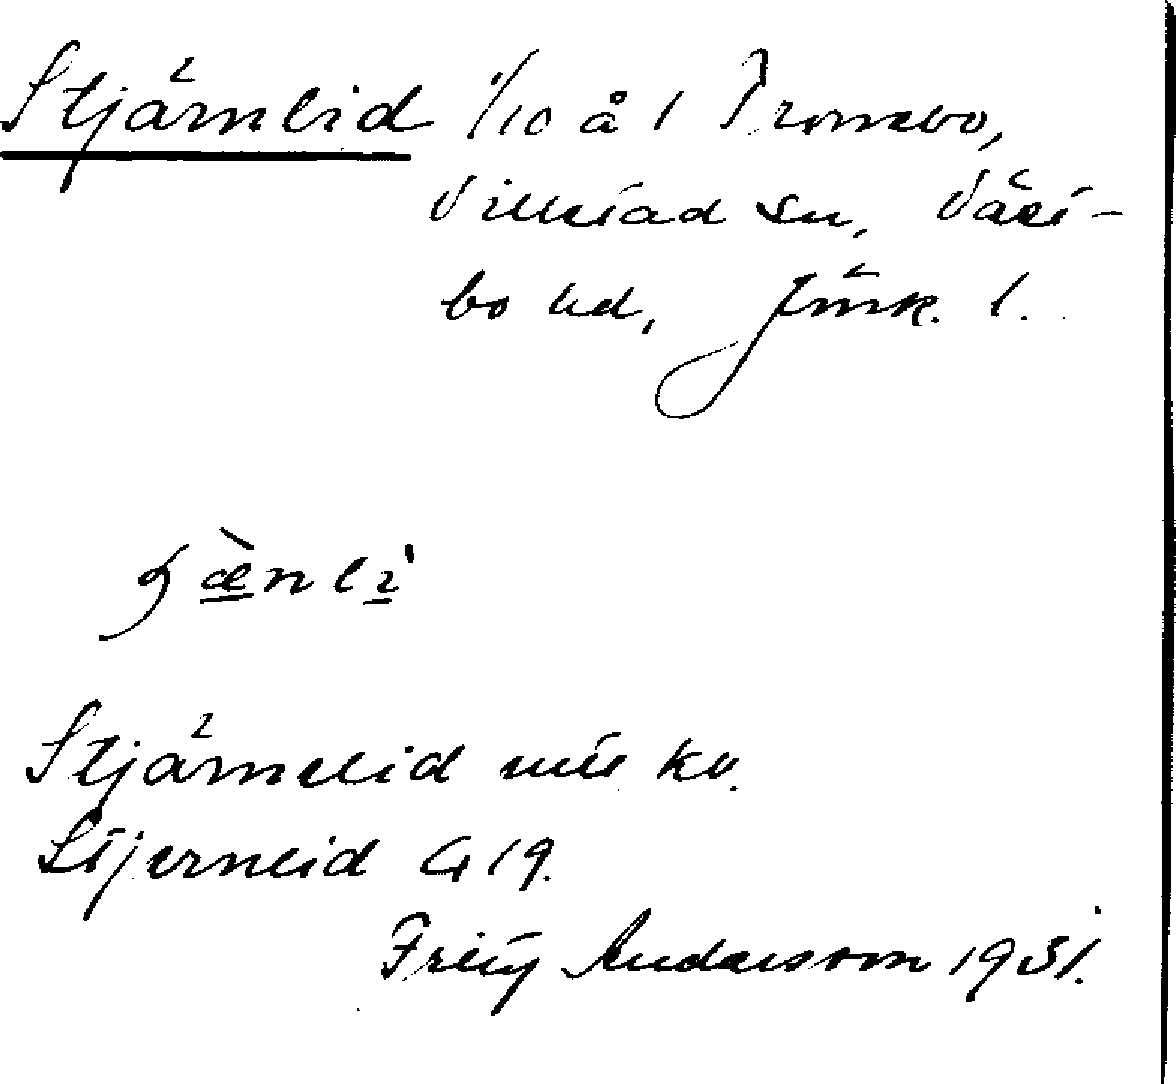 Stjärnlid 1/10 å 1 Prombo,
Villstad sn, Västbo
bo hd, Jönk. l.
Stjärnelid
Stjernlid G 19.
Fritz Andersson 1931.